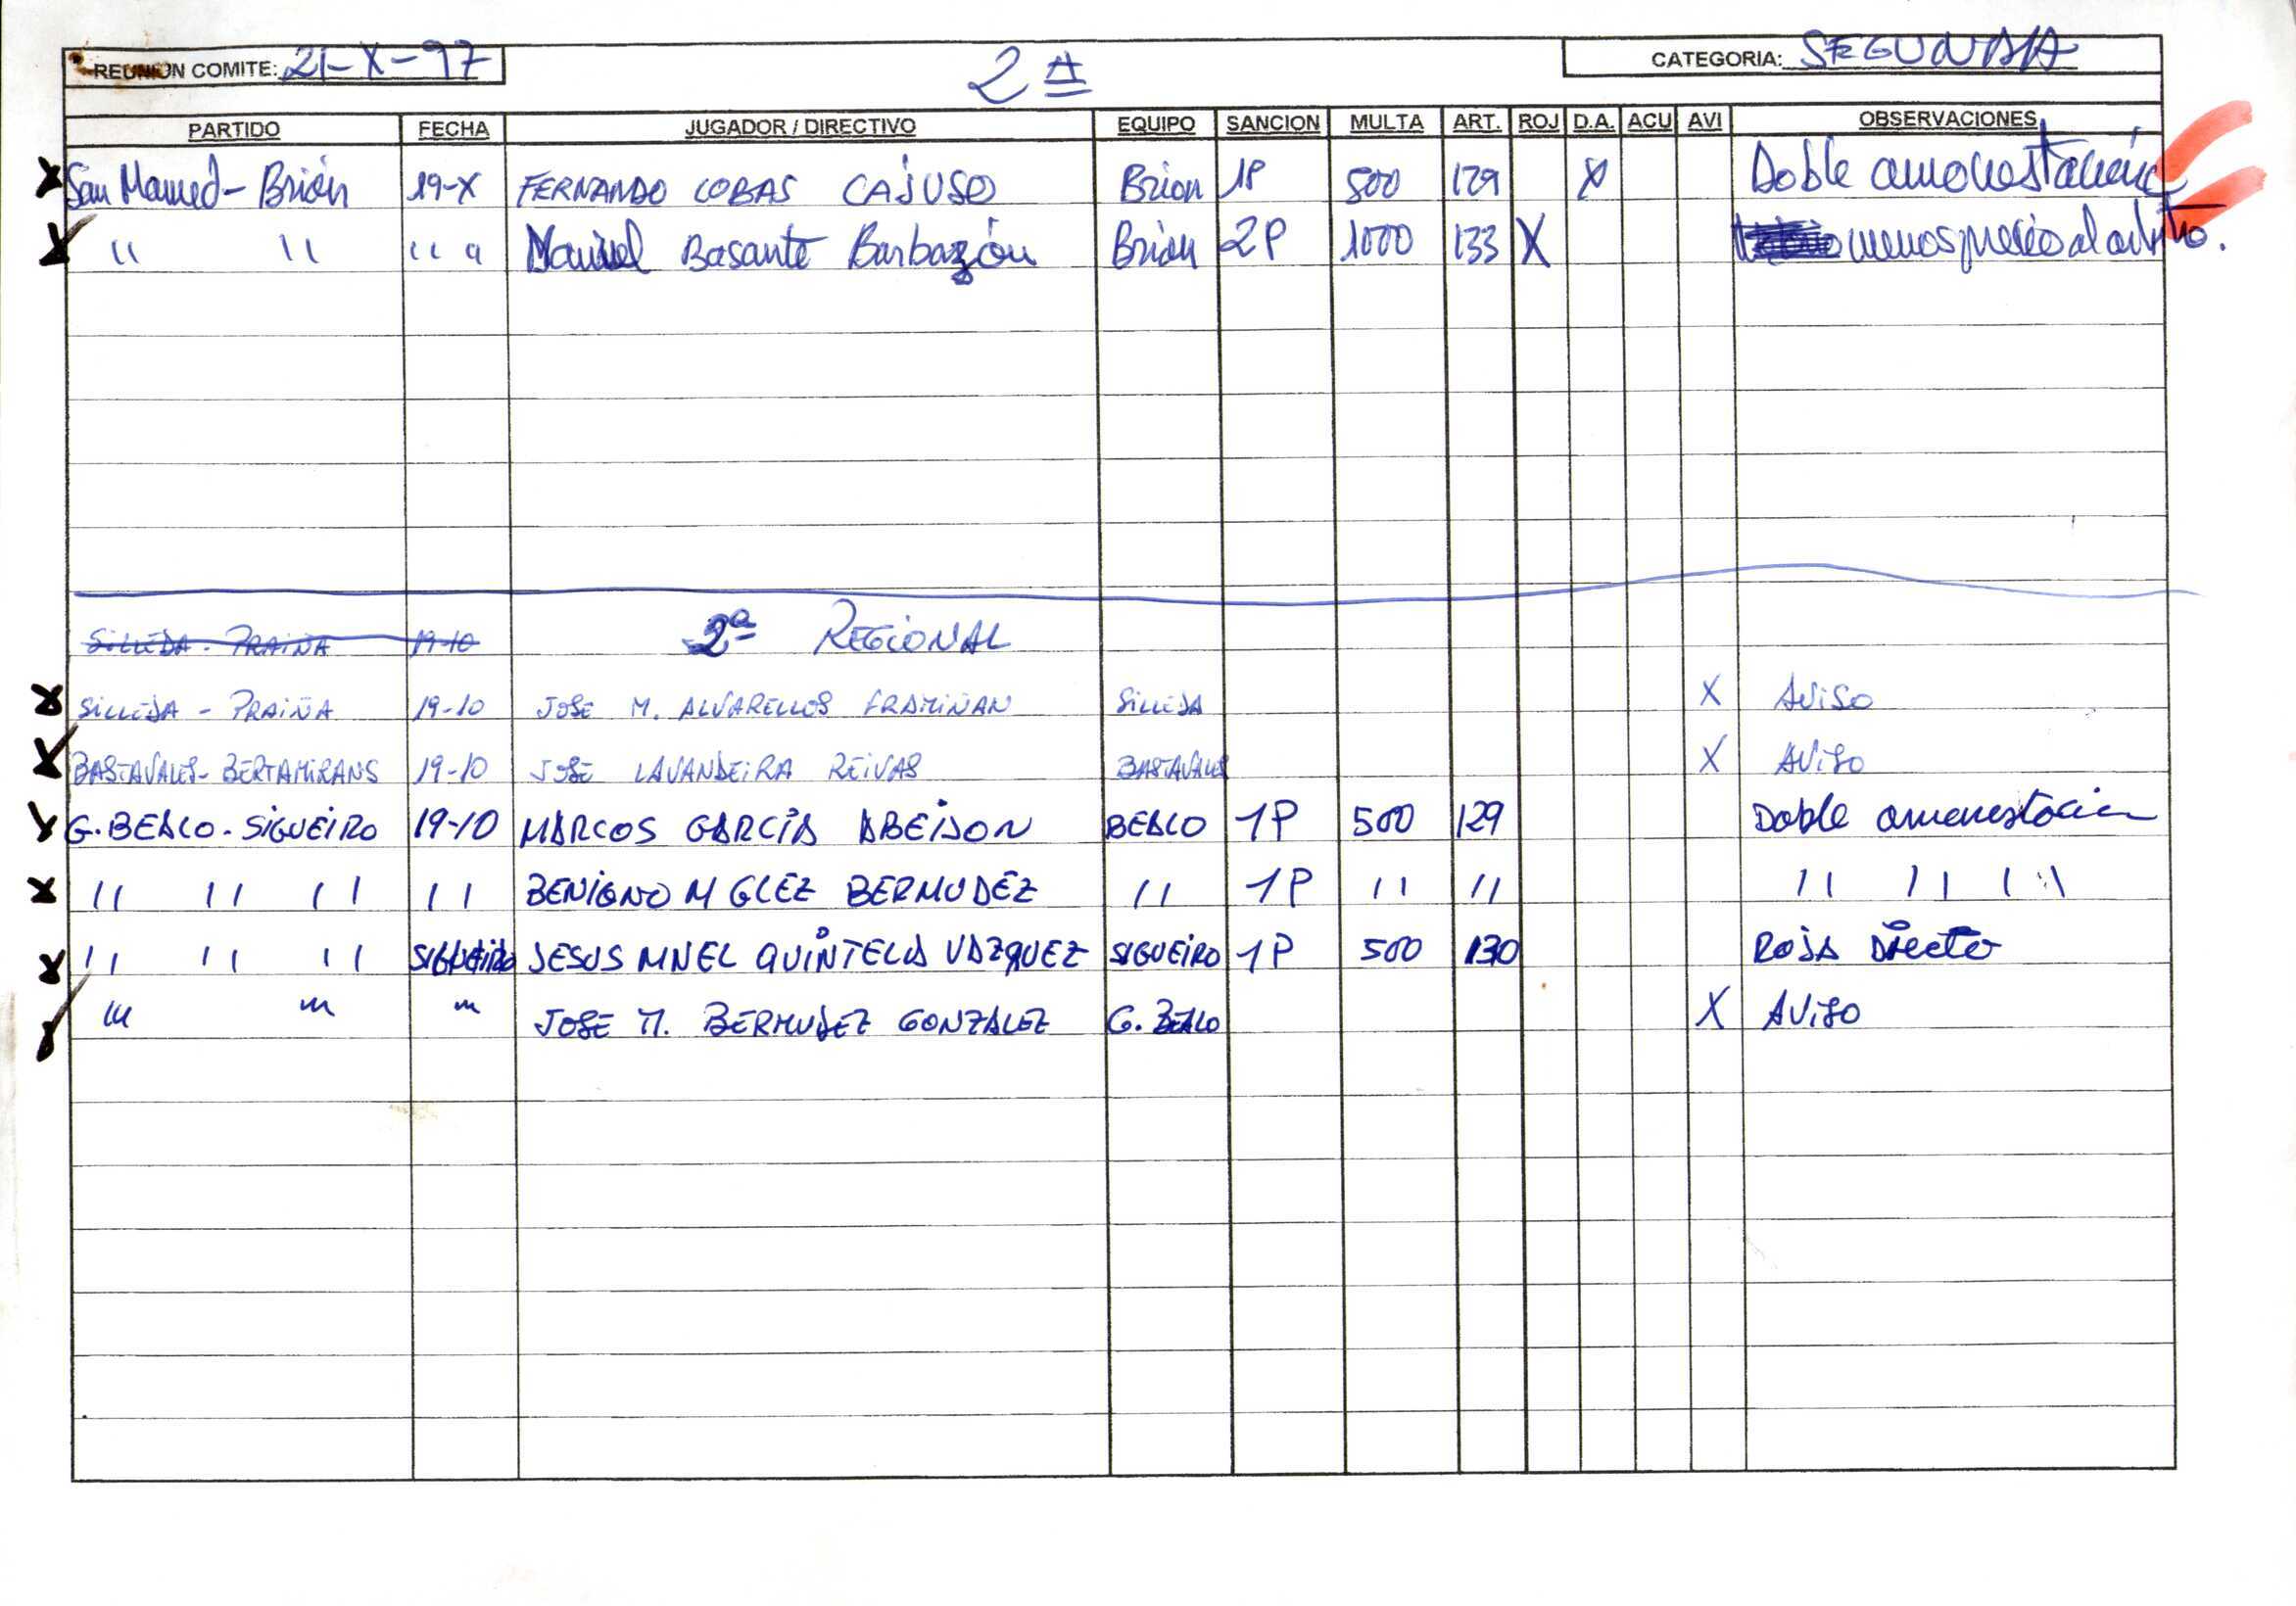 REUNION COMITE: 21-X-97 2ª CATEGORIA: SEGUNDA
PARTIDO FECHA JUGADOR / DIRECTIVO EQUIPO SANCION MULTA ART. ROJ D.A. ACU AVI OBSERVACIONES
X San Mamed - Brión 19-X FERNANDO COBAS CAJUSO Brion 1P 500 129 X Doble amonestación
X " " " " Manuel Basante Barbazón Brión 2P 1000 133 X menosprecio al arbitro.
SILLEDA - PRAIÑA 19-10 2ª REGIONAL
X SILLEDA - PRAIÑA 19-10 JOSE M. ALVARELLOS FRAMIÑAN SILLEDA X AVISO
X BASTAVALES - BERTAMIRANS 19-10 JOSE LAVANDEIRA REIVAS BASTAVALES X AVISO
X G. BEALO - SIGUEIRO 19-10 MARCOS GARCÍA ABEIJON BEALO 1P 500 129 Doble amonestacion
X " " " " BENIGNO M GLEZ BERMUDEZ " 1P " " " " " "
X " " " SIGUEIRO JESUS MNEL QUINTELA VAZQUEZ SIGUEIRO 1P 500 130 ROJA Directa
X " " " JOSE M. BERMUDEZ GONZALEZ G. BEALO X AVISO